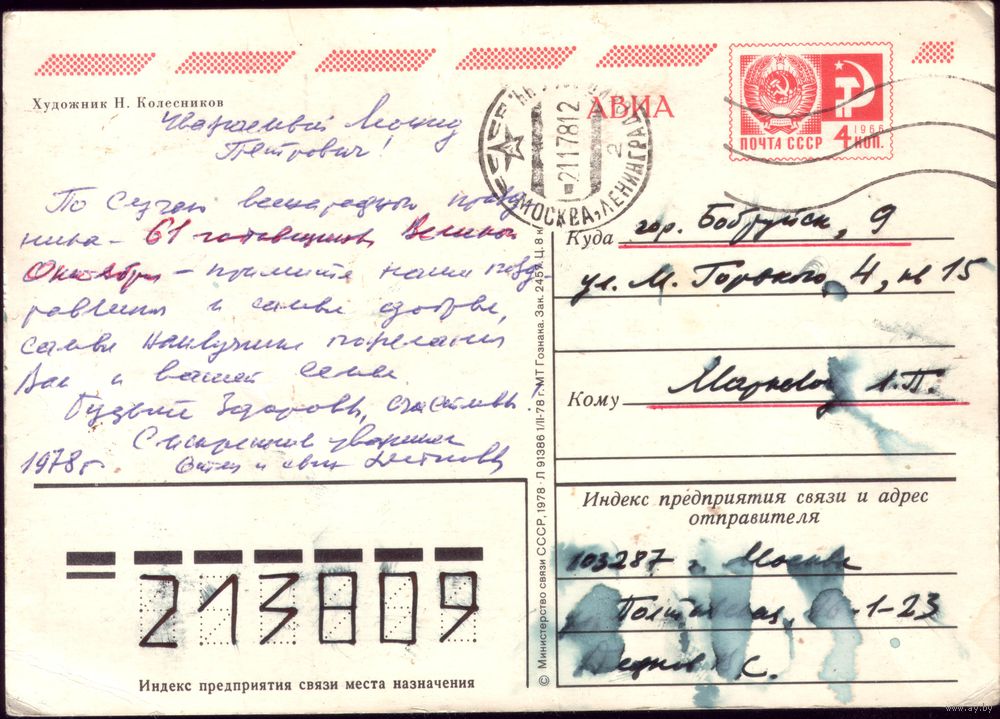 Художник Н. Колесников
АВИА
ПОЧТА СССР
1966
4 КОП.
21117812
2
МОСКВА, ЛЕНИНГРАД
Уважаемый
Петрович!
По случаю всенародный празд
ника - 61 годовщиной Великой
Октября - примите наши позд-
равления и самые добрые,
самые наилучшие пожелания
Вам и вашей семье.
Будьте здоровы, счастливы!
С искренним уважением
1978 г.
Куда гор. Бобруйск, 9
ул. М. Горького, 4, кв 15
Кому А.П.
Индекс предприятия связи и адрес
отправителя
103287 г. Москва
1-23
С.
213809
Индекс предприятия связи места назначения
© Министерство связи СССР, 1978 · Л 91386 1/II-78 г. МТ Гознака. Зак. 2457. Ц. 8 к.
www.ay.by